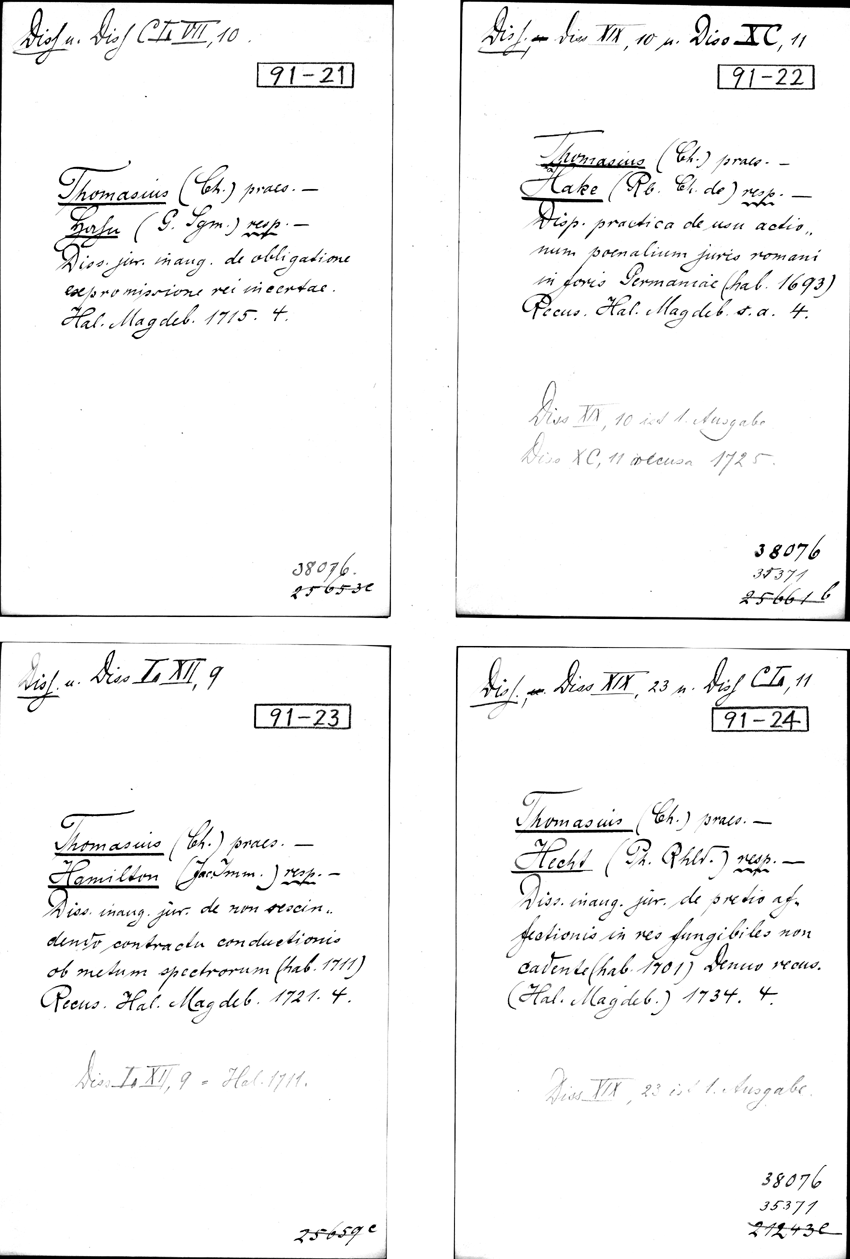 Diss u. Diss CLVIII, 10.
91-21
Thomasius (Ch.) praes. —
( G. Sgm.) resp. —
Diss. jur. inaug. de obligatione
expromissione rei incertae.
Hal. Magdeb. 1715. 4.
38076.
25653c
Diss., Diss XIX, 10 u. Diss XC, 11
91-22
Thomasius (Ch.) praes. —
Hake (Rb. Ch. de) resp. —
Disp. practica de usu actio„
num poenalium juris romani
in foris Germaniae (hab. 1693)
Recus. Hal. Magdeb. s. a. 4.
Diss XIX, 10 ist 1. Ausgabe
Diss XC, 11 recusa 1725.
38076
35371
25661 b
Diss. u. Diss LXII, 9
91-23
Thomasius (Ch.) praes. —
Hamilton (Jac. Imm.) resp. —
Diss. inaug. jur. de non rescin„
dendo contractu conductionis
ob metum spectrorum (hab. 1711)
Recus. Hal. Magdeb. 1721. 4.
Diss LXII, 9 = Hal. 1711.
25659 c
Diss., Diss XIX, 23 u. Diss CL, 11
91-24
Thomasius (Ch.) praes. —
Hecht (Ph. Rhld.) resp. —
Diss. inaug. jur. de pretio af„
fectionis in res fungibiles non
cadente (hab. 1701) Denuo recus.
(Hal. Magdeb.) 1734. 4.
Diss XIX, 23 ist 1. Ausgabe.
38076
35371
21243c